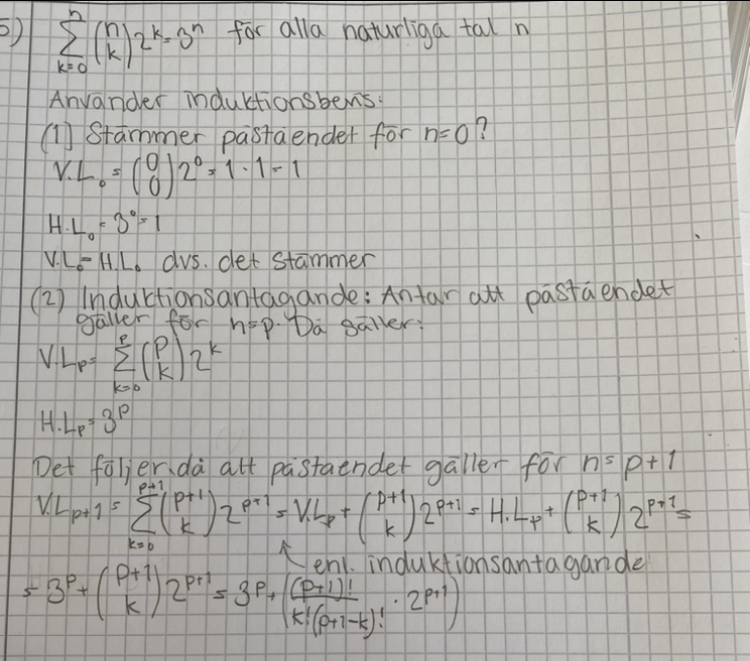 5) n∑k=0 (n k) 2^k = 3^n för alla naturliga tal n
Använder induktionsbevis:
(1) Stämmer påståendet för n=0?
V.L₀ = (0 0) 2⁰ = 1 · 1 = 1
H.L₀ = 3⁰ = 1
V.L₀ = H.L₀ dvs. det stämmer
(2) Induktionsantagande: Antar att påståendet
gäller för n=p. Då gäller:
V.Lp = p∑k=0 (p k) 2^k
H.Lp = 3^p
Det följer då att påstaendet gäller för n = p+1
V.Lp+1 = p+1∑k=0 (p+1 k) 2^p+1 = V.Lp + (p+1 k) 2^p+1 = H.Lp + (p+1 k) 2^p+1 =
↑ enl. induktionsantagande
= 3^p + (p+1 k) 2^p+1 = 3^p + ((p+1)! / k!(p+1-k)! · 2^p+1)